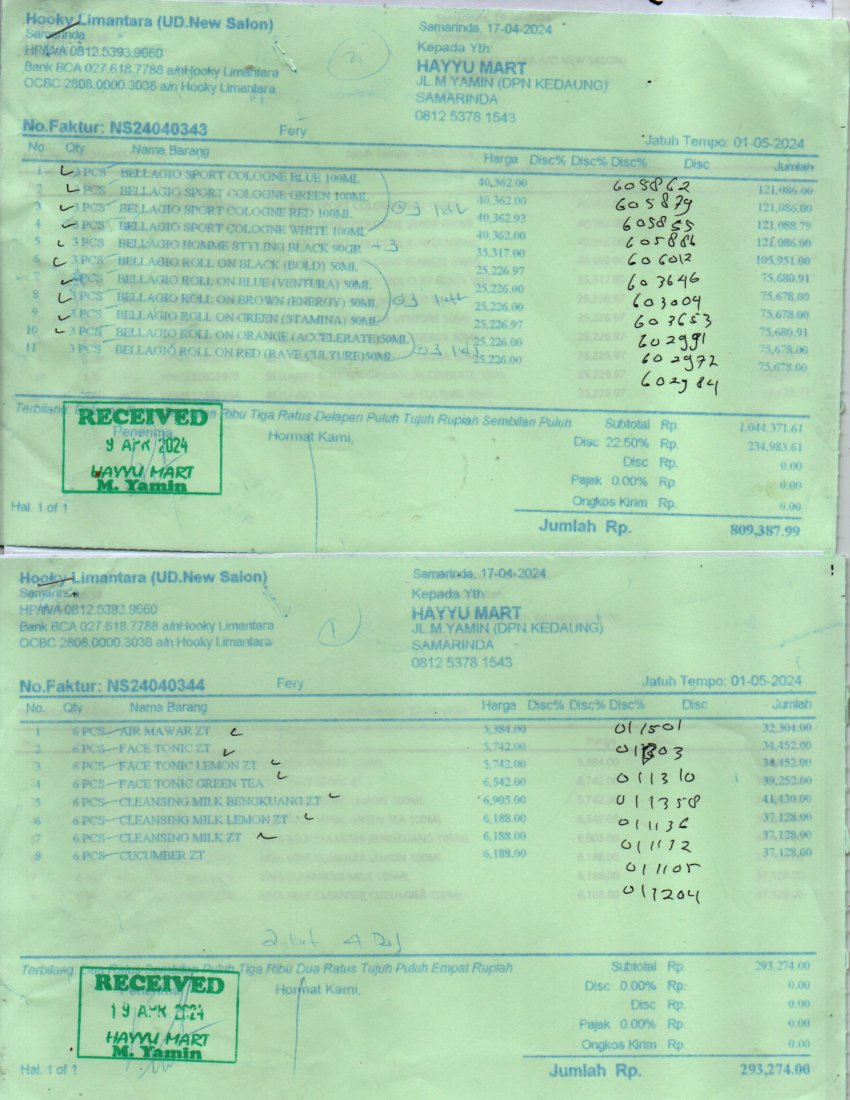 Hooky Limantara (UD.New Salon)
Samarinda, 17-04-2024
Samarinda
Kepada Yth:
HP/WA 0812.5393.9660
HAYYU MART
Bank BCA 027.618.7788 a/nHooky Limantara
JL.M.YAMIN (DPN KEDAUNG)
OCBC 2808.0000.3038 a/n Hooky Limantara
SAMARINDA
0812 5378 1543
No.Faktur: NS24040343 Fery Jatuh Tempo: 01-05-2024
No Qty Nama Barang Harga Disc% Disc% Disc% Disc Jumlah
1 3 PCS BELLAGIO SPORT COLOGNE BLUE 100ML 40,362.00 605862 121,086.00
2 3 PCS BELLAGIO SPORT COLOGNE GREEN 100ML 40,362.00 605879 121,086.00
3 3 PCS BELLAGIO SPORT COLOGNE RED 100ML 40,362.93 605855 121,088.79
4 3 PCS BELLAGIO SPORT COLOGNE WHITE 100ML 40,362.00 605886 121,086.00
5 3 PCS BELLAGIO HOMME STYLING BLACK 90GR +3 35,317.00 606012 105,951.00
6 3 PCS BELLAGIO ROLL ON BLACK (BOLD) 50ML 25,226.97 603646 75,680.91
7 3 PCS BELLAGIO ROLL ON BLUE (VENTURA) 50ML 25,226.00 603004 75,678.00
8 3 PCS BELLAGIO ROLL ON BROWN (ENERGY) 50ML 25,226.00 603653 75,678.00
9 3 PCS BELLAGIO ROLL ON GREEN (STAMINA) 50ML 25,226.97 602991 75,680.91
10 3 PCS BELLAGIO ROLL ON ORANGE (ACCELERATE)50ML 25,226.00 602972 75,678.00
11 3 PCS BELLAGIO ROLL ON RED (RAVE CULTURE)50ML 25,226.00 602984 75,678.00
Terbilang: Ribu Tiga Ratus Delapan Puluh Tujuh Rupiah Sembilan Puluh
Subtotal Rp. 1,044,371.61
Penerima Hormat Kami,
Disc 22.50% Rp. 234,983.61
Disc Rp. 0.00
Pajak 0.00% Rp. 0.00
Ongkos Kirim Rp. 0.00
RECEIVED
9 APR 2024
HAYYU MART
M. Yamin
Hal. 1 of 1
Jumlah Rp. 809,387.99
Hooky Limantara (UD.New Salon)
Samarinda, 17-04-2024
Samarinda
Kepada Yth:
HP/WA 0812.5393.9660
HAYYU MART
Bank BCA 027.618.7788 a/nHooky Limantara
JL.M.YAMIN (DPN KEDAUNG)
OCBC 2808.0000.3038 a/n Hooky Limantara
SAMARINDA
0812 5378 1543
1
No.Faktur: NS24040344 Fery Jatuh Tempo: 01-05-2024
No. Qty Nama Barang Harga Disc% Disc% Disc% Disc Jumlah
1 6 PCS AIR MAWAR ZT 5,384.00 011501 32,304.00
2 6 PCS FACE TONIC ZT 5,742.00 011303 34,452.00
3 6 PCS FACE TONIC LEMON ZT 5,742.00 011310 34,452.00
4 6 PCS FACE TONIC GREEN TEA 6,542.00 011358 39,252.00
5 6 PCS CLEANSING MILK BENGKUANG ZT 6,905.00 011136 41,430.00
6 6 PCS CLEANSING MILK LEMON ZT 6,188.00 011112 37,128.00
7 6 PCS CLEANSING MILK ZT 6,188.00 011105 37,128.00
8 6 PCS CUCUMBER ZT 6,188.00 011204 37,128.00
Terbilang: Dua Ratus Sembilan Puluh Tiga Ribu Dua Ratus Tujuh Puluh Empat Rupiah
Subtotal Rp. 293,274.00
Penerima Hormat Kami,
Disc 0.00% Rp. 0.00
Disc Rp. 0.00
Pajak 0.00% Rp. 0.00
Ongkos Kirim Rp. 0.00
RECEIVED
19 APR 2024
HAYYU MART
M. Yamin
Hal. 1 of 1
Jumlah Rp. 293,274.00